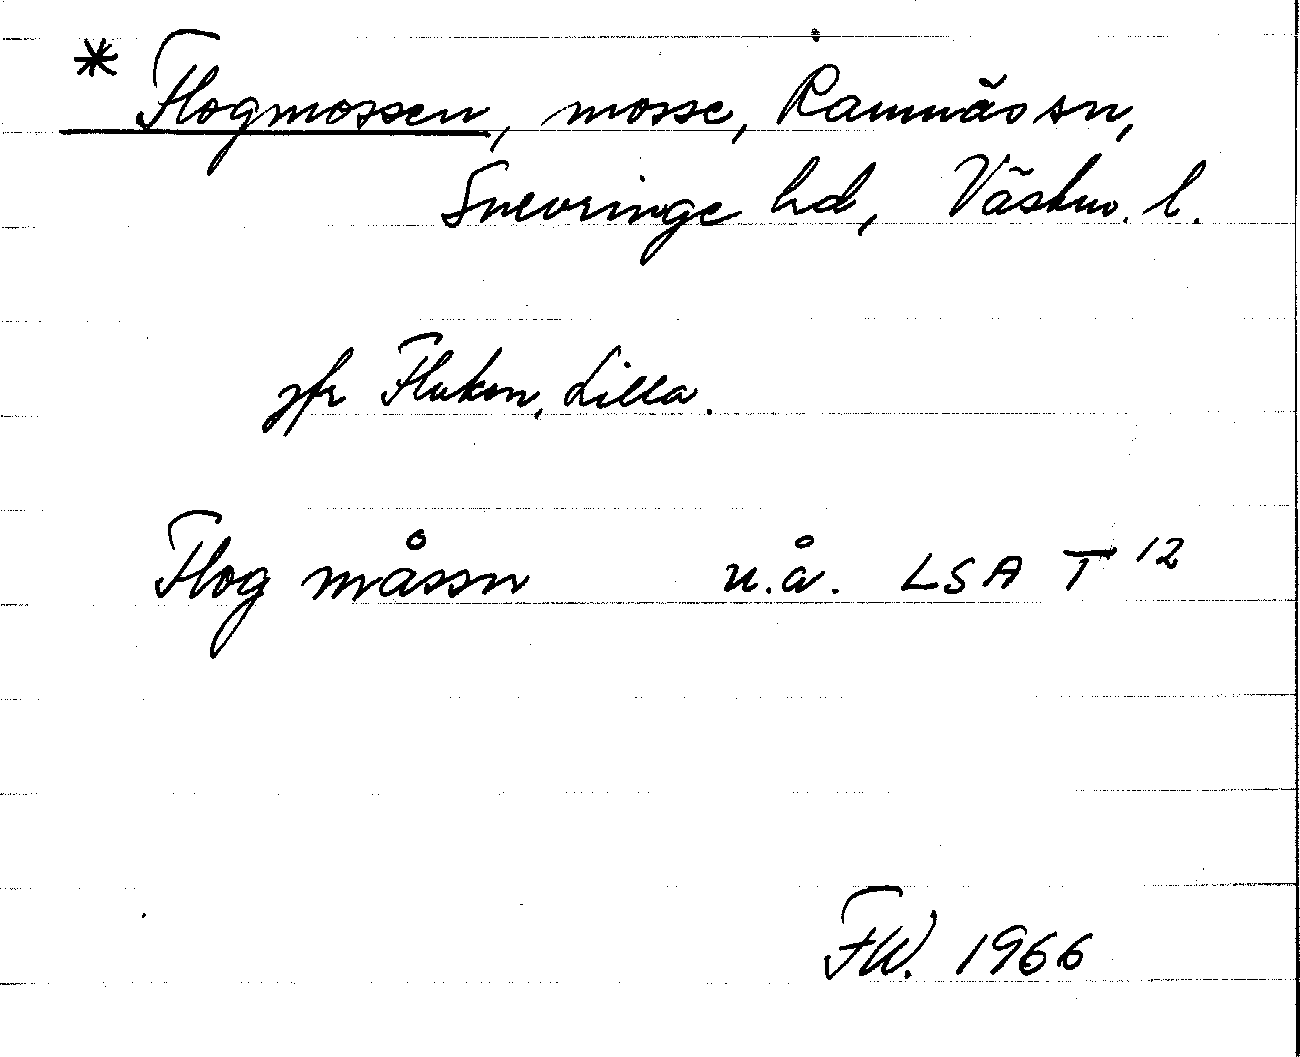 * Flogmossen, mosse, Ramnäs sn,
Snevringe hd, Västm. l.
jfr Fluken, Lilla.
Flog måssn u.å. LSA T 12
FW. 1966